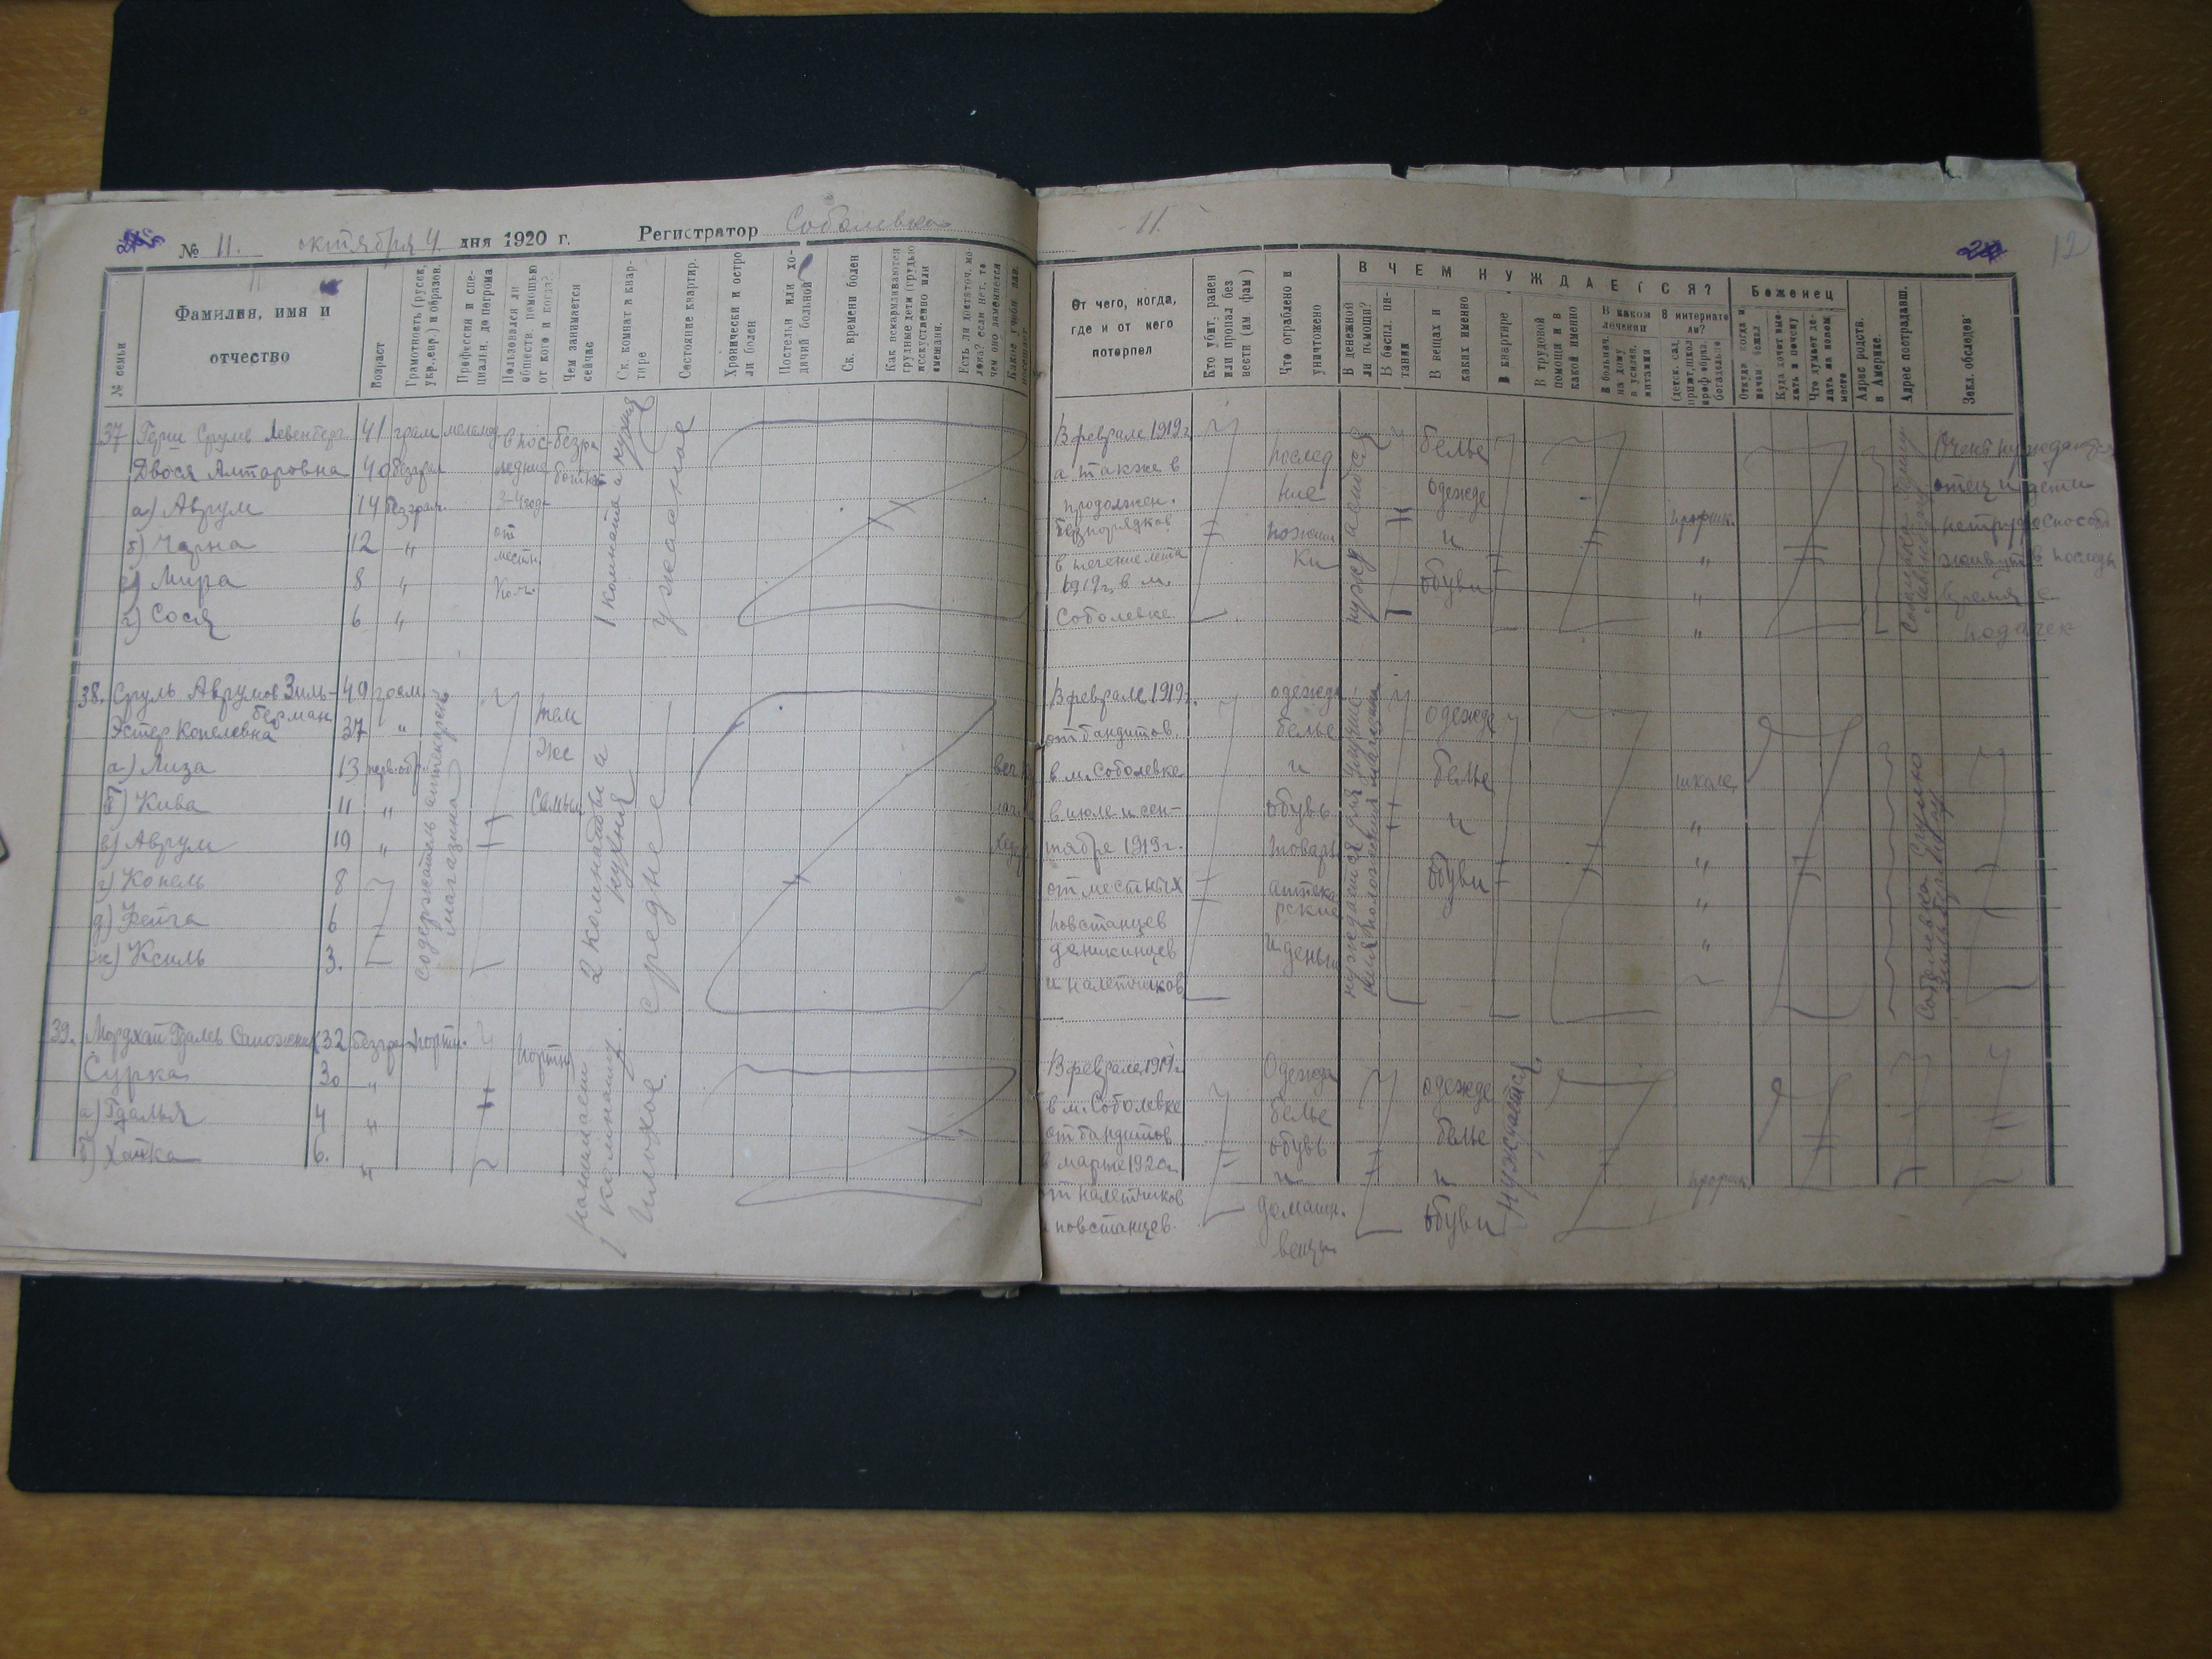 № 11. октября 4. дня 1920 г. Регистратор Соболевка
11.
12
№ семьи
Фамилия, имя и
отчество
Возраст
Грамотность (русск,
укр.,евр.) и образов.
Профессия и спе-
циальн. до погрома
Пользовался ли
обществ. помощью
от кого и когда?
Чем занимается
сейчас
Ск. комнат в квар-
тире
Состояние квартир.
Хронически и остро
ли болен
Постельн или хо-
дячий больной
Ск. времени болен
Как вскармливаются
грудные дети (грудью
искуственно или
смешан.
Есть ли достаточ. мо-
лока? если нет, то
чем оно заменяется
От чего, когда,
где и от кого
потерпел
Кто убит, ранен
или пропал без
вести (им фам)
Что ограблено и
уничтожено
В ЧЕМ НУЖДАЕТСЯ?
В денежной
ли помощи?
В беспл. пи-
тании
В вещах и
каких именно
В квартире
В трудовой
помощи и в
какой именно
В каком
лечении
В больнич.
на дому
в усилен.
питании
В интернате
ли?
(детск. сад,
приют, школ
проф образ.
богадельне
Беженец
Откуда когда и
почему бежал
Куда хочет вые-
хать и почему
Что думает де-
лать на новом
месте
Адрес родств.
в Америке.
Адрес пострадавш.
Закл. обследов.
37 Герш Срулев Левенберг 41 грам меламед в пос- безра
Двося Алтаровна 40 безграм ледние ботн
а) Аврум 14 безграм. 3-4 года
б) Чарна 12 " от
в) Мира 8 " местн.
г) Сося 6 " Ко-та.
1 комната и кухня
ужасное
В феврале 1919 г.
а также в
продолжен.
безпорядков
в течение лета
1919 г. в м.
Соболевке
послед
ние
пожит
ки
нуждаются
белье
одежде
и
обуви
профик.
"
"
"
Очень нуждается
отец и дети
нетрудоспособ
живут в последн
время с
подачек
38. Сруль Аврумов Зиль- 49 грам.
берман
Эстер Копелевна 37 "
а) Лиза 13 перв. обр.
б) Кива 11 "
в) Аврум 10 "
г) Копель 8
д) Фейга 6
ж) Ксиль 3.
содержатель аптекарск
магазина
тем
же
Самым
2 комнаты и
кухня
среднее
В феврале 1919 г.
от бандитов
в м. Соболевке
в июле и сен-
тябре 1919 г.
от местных
повстанцев
деникинцев
и налетчиков
одежда
белье
и
обувь
товары
аптека
рские
и деньги
одежде
белье
и
обуви
школе
"
"
"
"
39. Мордхай Гдалев Сапожник 32 безгр портн.
портн
Сурка 30 "
а) Гдалья 4 "
б) Хайка 6. "
занимает
1 комнату.
плохое.
В феврале 1919 г.
в м. Соболевке
от бандитов
в марте 1920 г.
от налетчиков
повстанцев.
Одежда
белье
обувь
и
домашн.
вещи
одежде
белье
и
обуви
нуждается
профик.